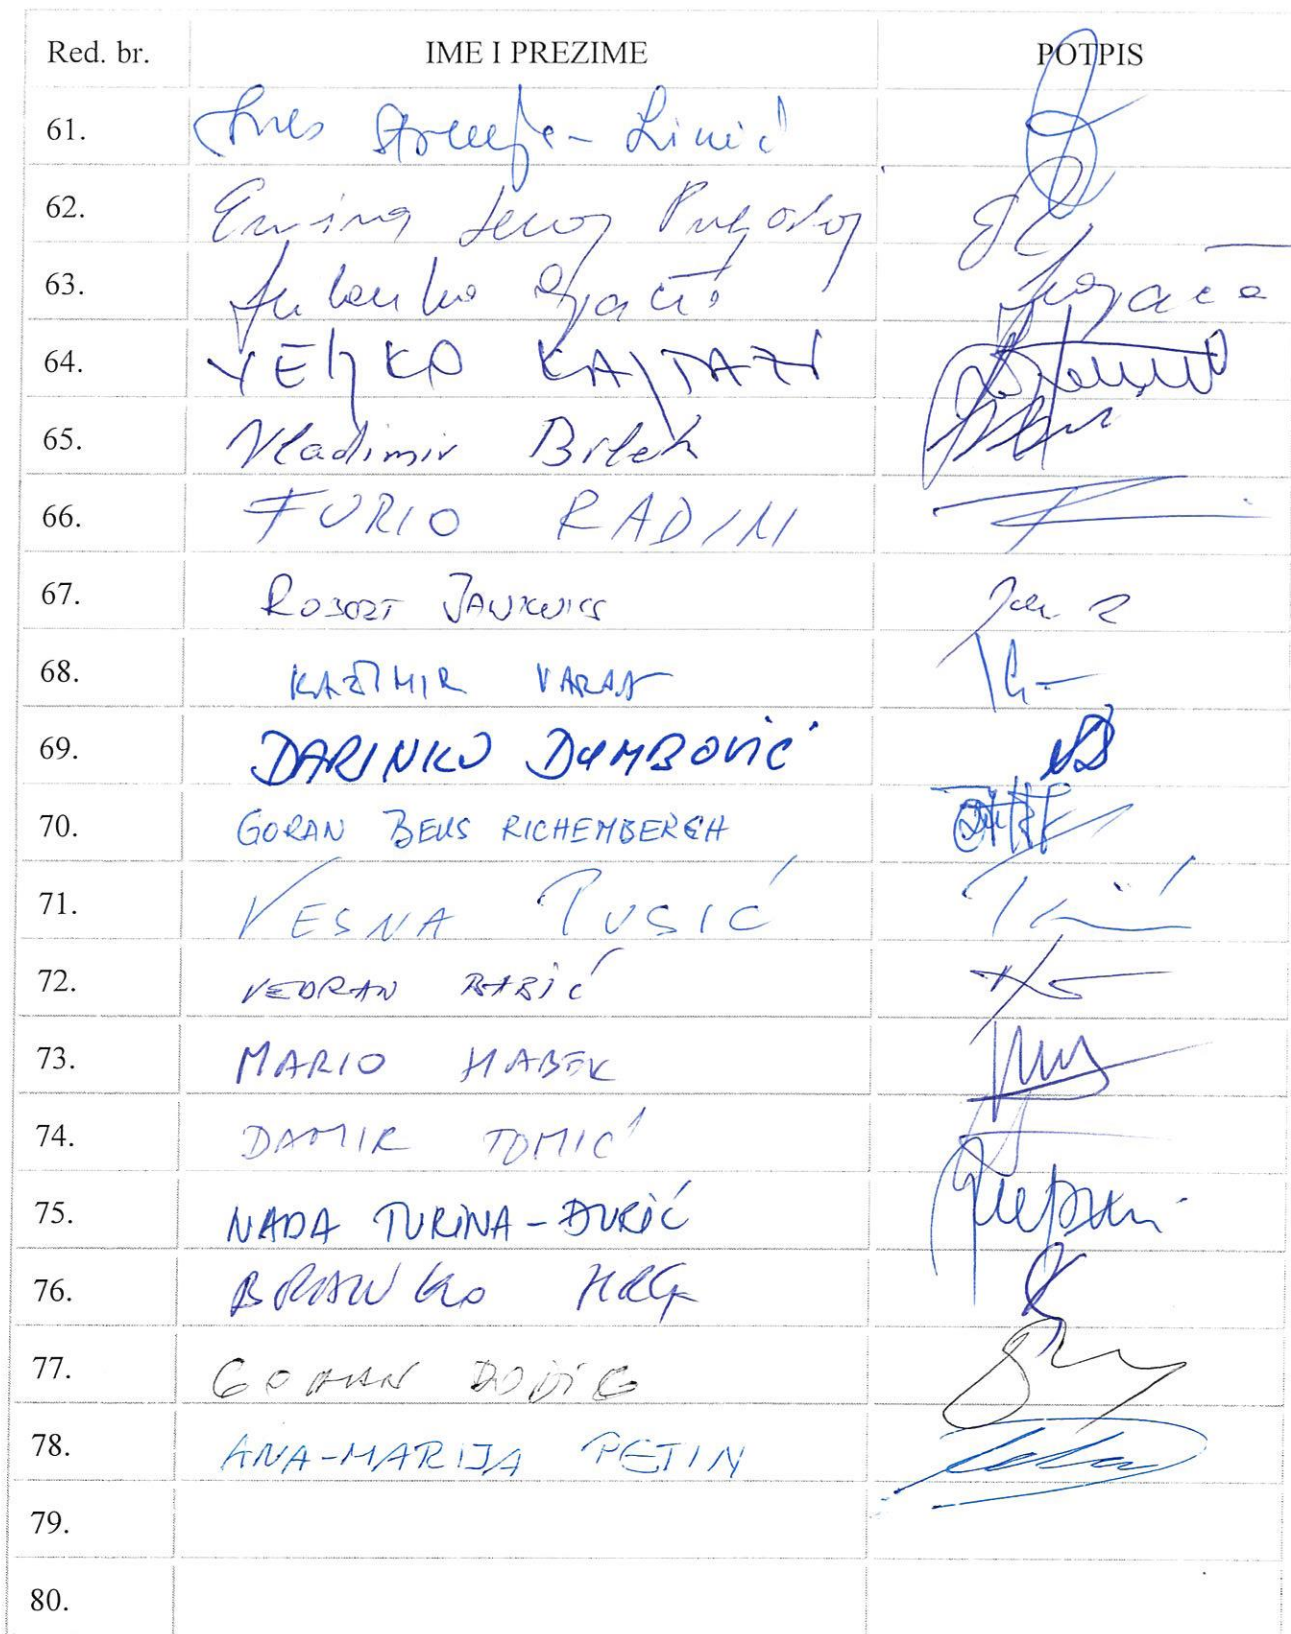 Red. br. IME I PREZIME POTPIS
61. Ines Strenja-Linić
62. Ermina Lekaj Prljaskaj
63. Ljubinko
64. VELJKO KAJTAZI
65. Vladimir Bilek
66. FURIO RADIN
67. ROBERT JANKOVICS
68. KAZIMIR VARDA
69. DARINKO DUMBOVIĆ
70. GORAN BEUS RICHEMBERGH
71. VESNA PUSIĆ
72. VEDRAN BABIĆ
73. MARIO HABEK
74. DAMIR TOMIĆ
75. NADA TURINA-ĐURIĆ
76. BRANKO HRG
77. GORAN DODIG
78. ANA-MARIJA PETIN
79.
80.